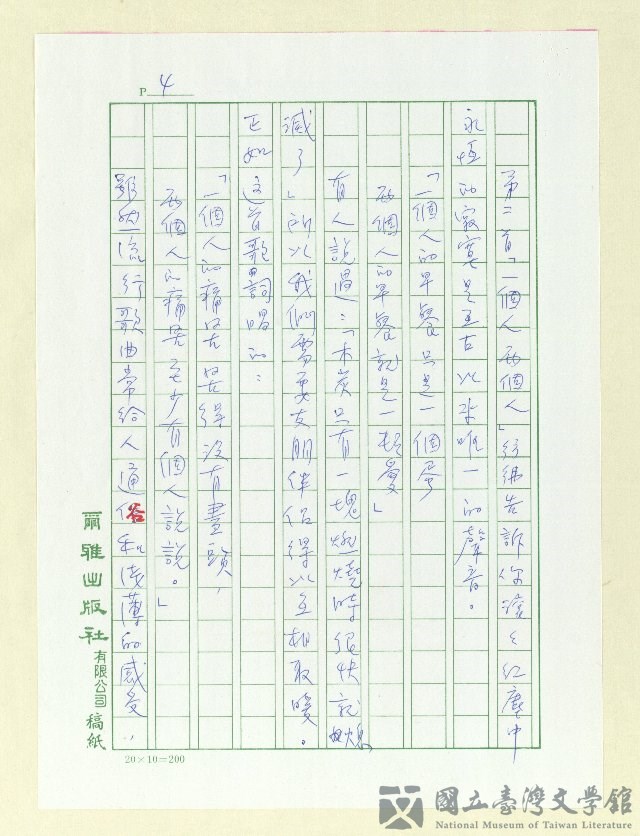 P 4
第二首「一個人兩個人」彷彿告訴你滾滾紅塵中
永恆的寂寞是亙古以來唯一的聲音。
「一個人的早餐只是一個蛋
兩個人的早餐就是一頓愛」
有人說過:「木炭只有一塊燃燒時很快就熄
滅了」所以我們需要友朋伴侶得以互相取暖。
正如這首歌詞唱的:
「一個人的痛苦苦得沒有盡頭,
兩個人的痛苦至少有個人說說。」
雖然流行歌曲常給人通俗和淺薄的感受,
爾雅出版社有限公司稿紙
20×10=200
國立臺灣文學館
National Museum of Taiwan Literature